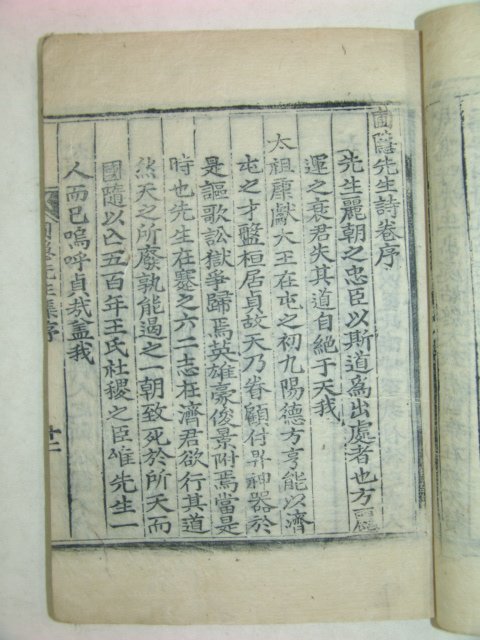 圃隱先生詩卷序
先生麗朝之忠臣以斯道爲出處者也方麗
運之衰君失其道自絕于天我
太祖康獻大王在屯之初九陽德方亨能以濟
屯之才盤桓居貞故天乃眷顧付畀神器於
是謳歌訟獄爭歸焉英雄豪俊景附焉當是
時也先生在蹇之六二志在濟君欲行其道
然天之所廢孰能遏之一朝致死於所天而
國隨以亡五百年王氏社稷之臣唯先生一
人而已嗚呼貞哉蓋我
圃隱先生集序
十二